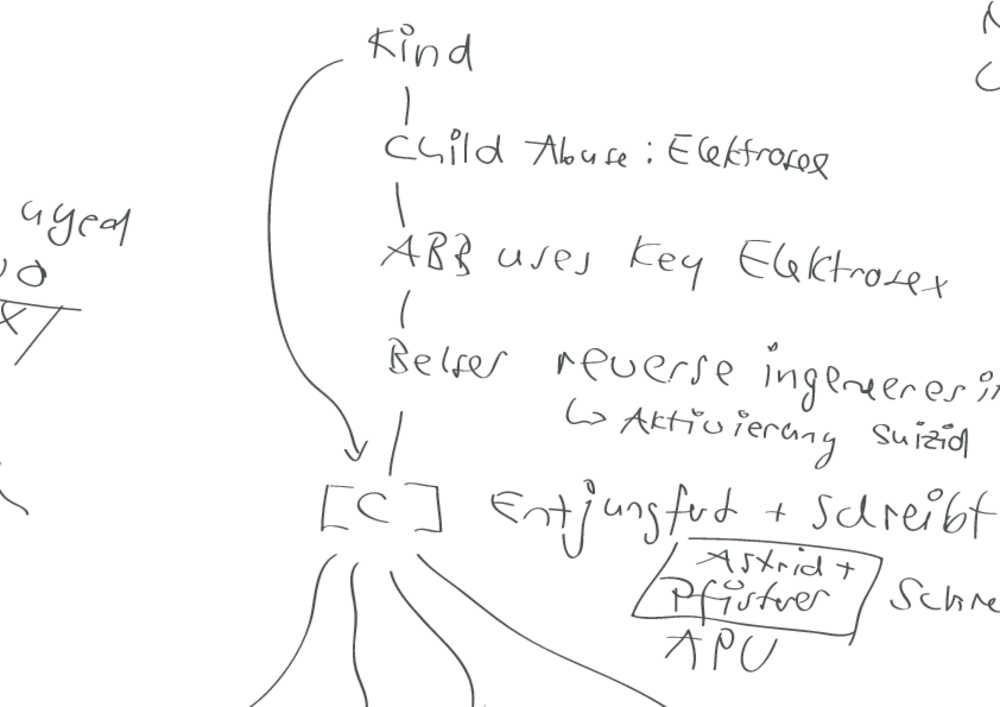 Kind
Child Abuse : Elektrosex
aged
ABB uses key Elektrosex
Belser reverse ingeneeres in
↳ Aktivierung suizid
[C] Entjungfert + schreibt
Astrid +
Pfisterer
APU